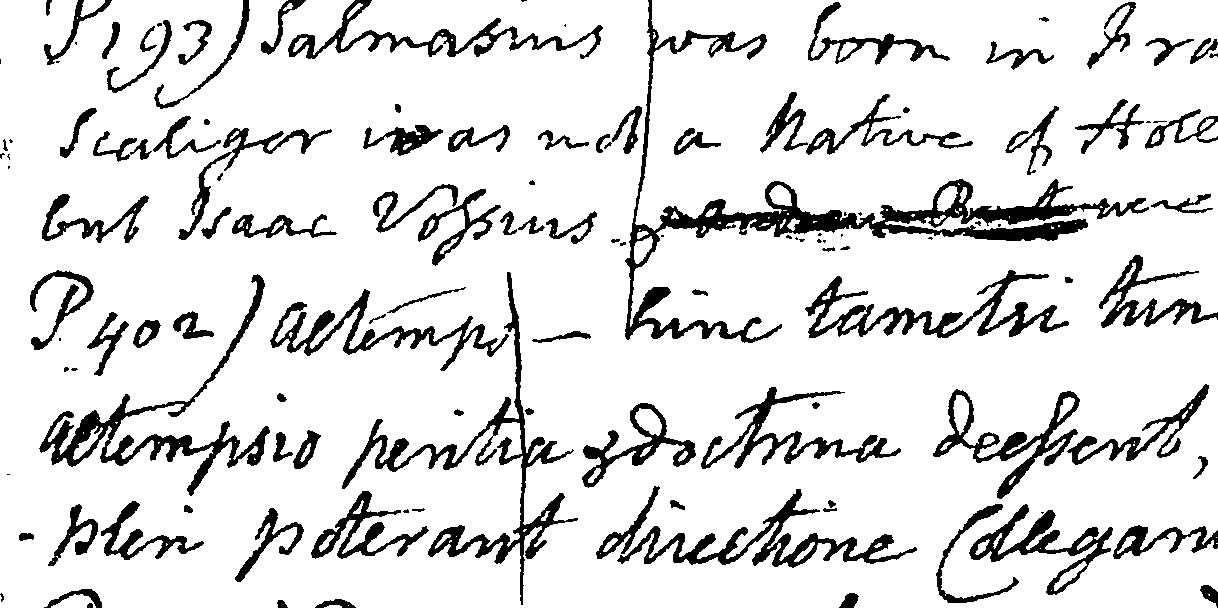 P 193) Salmasius was born in Fra
Scaliger was not a Native of Holl
but Isaac Vossius & were
P 402) aetempo — hinc tametsi tun
aetempsio peritia & doctrina deessent,
-pleri poterant directione (elegan